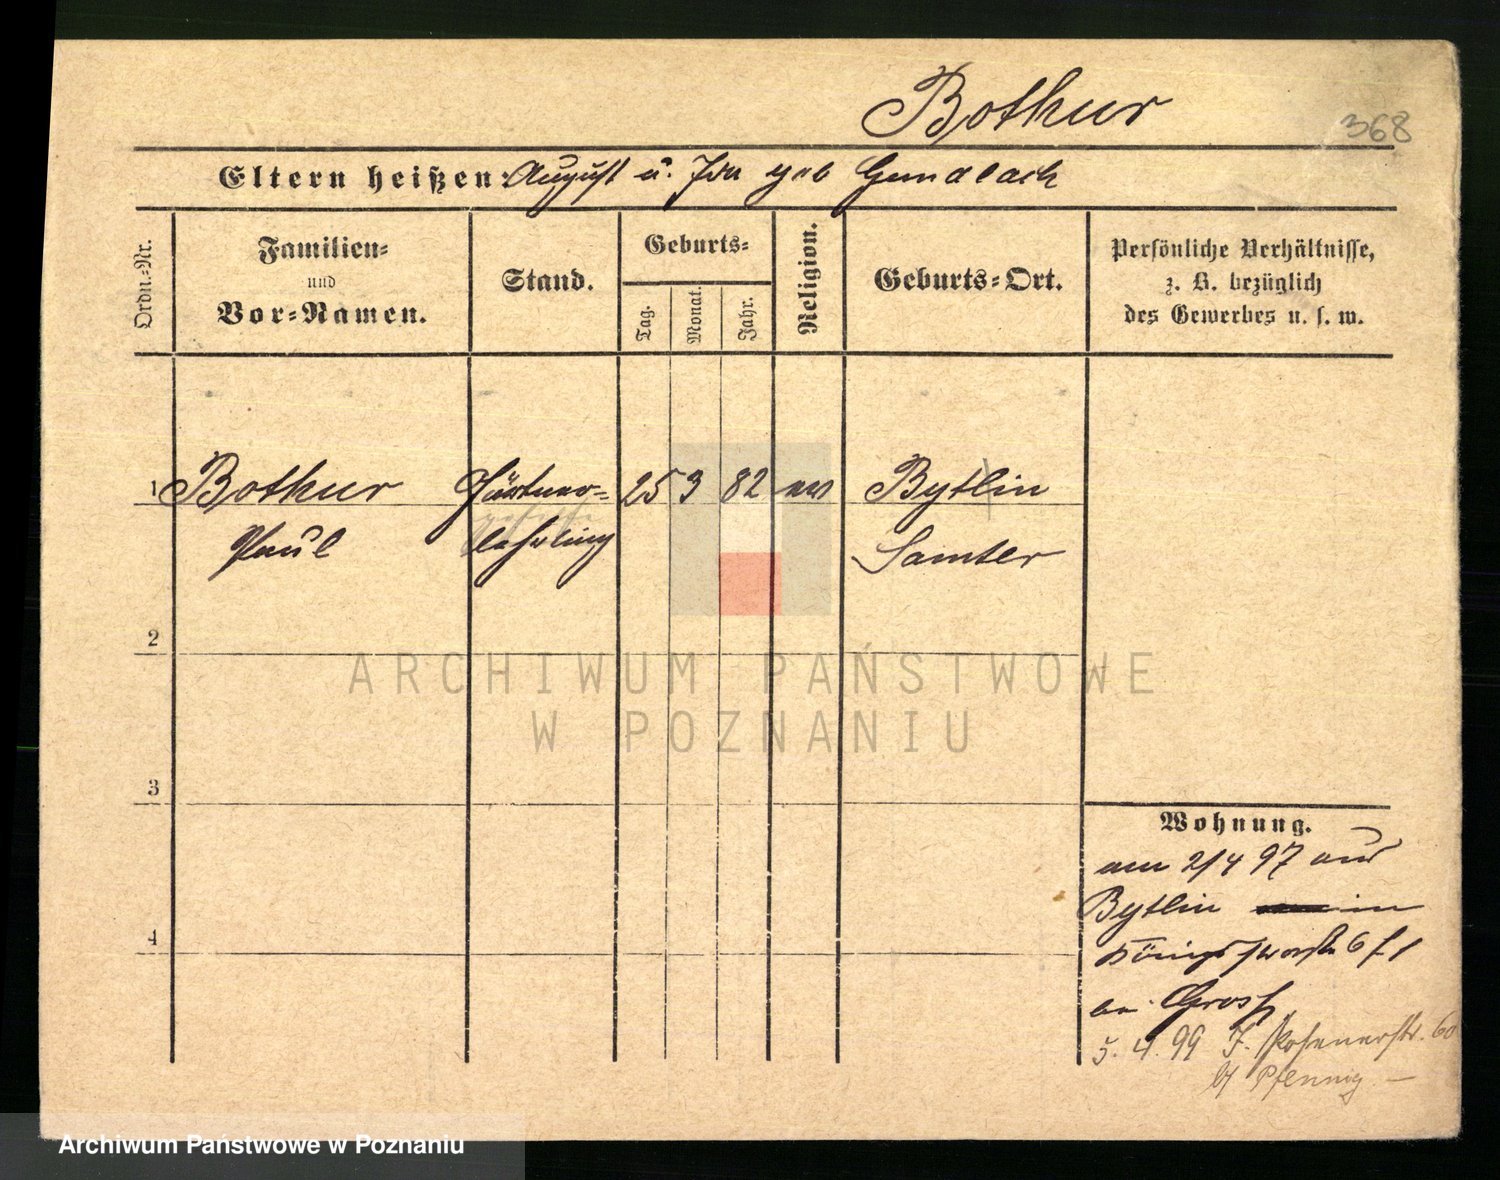 Bothur
368
Eltern heißen: August u. Ida geb Gundlach
Ordn.-Nr.
Familien-
und
Vor-Namen.
Stand.
Geburts-
Tag.
Monat.
Jahr.
Religion.
Geburts-Ort.
Persönliche Verhältnisse,
z. B. bezüglich
des Gewerbes u. s. w.
1 Bothur Gärtner- 25 3 82 ev Bytlin
Paul lehrling Samter
2
3
4
ARCHIWUM PAŃSTWOWE
W POZNANIU
Wohnung.
am 2/4 97 aus
Bytlin in
6
Gross
5. 4. 99 J. Posenerstr. 60
b/ Pfennig
Archiwum Państwowe w Poznaniu